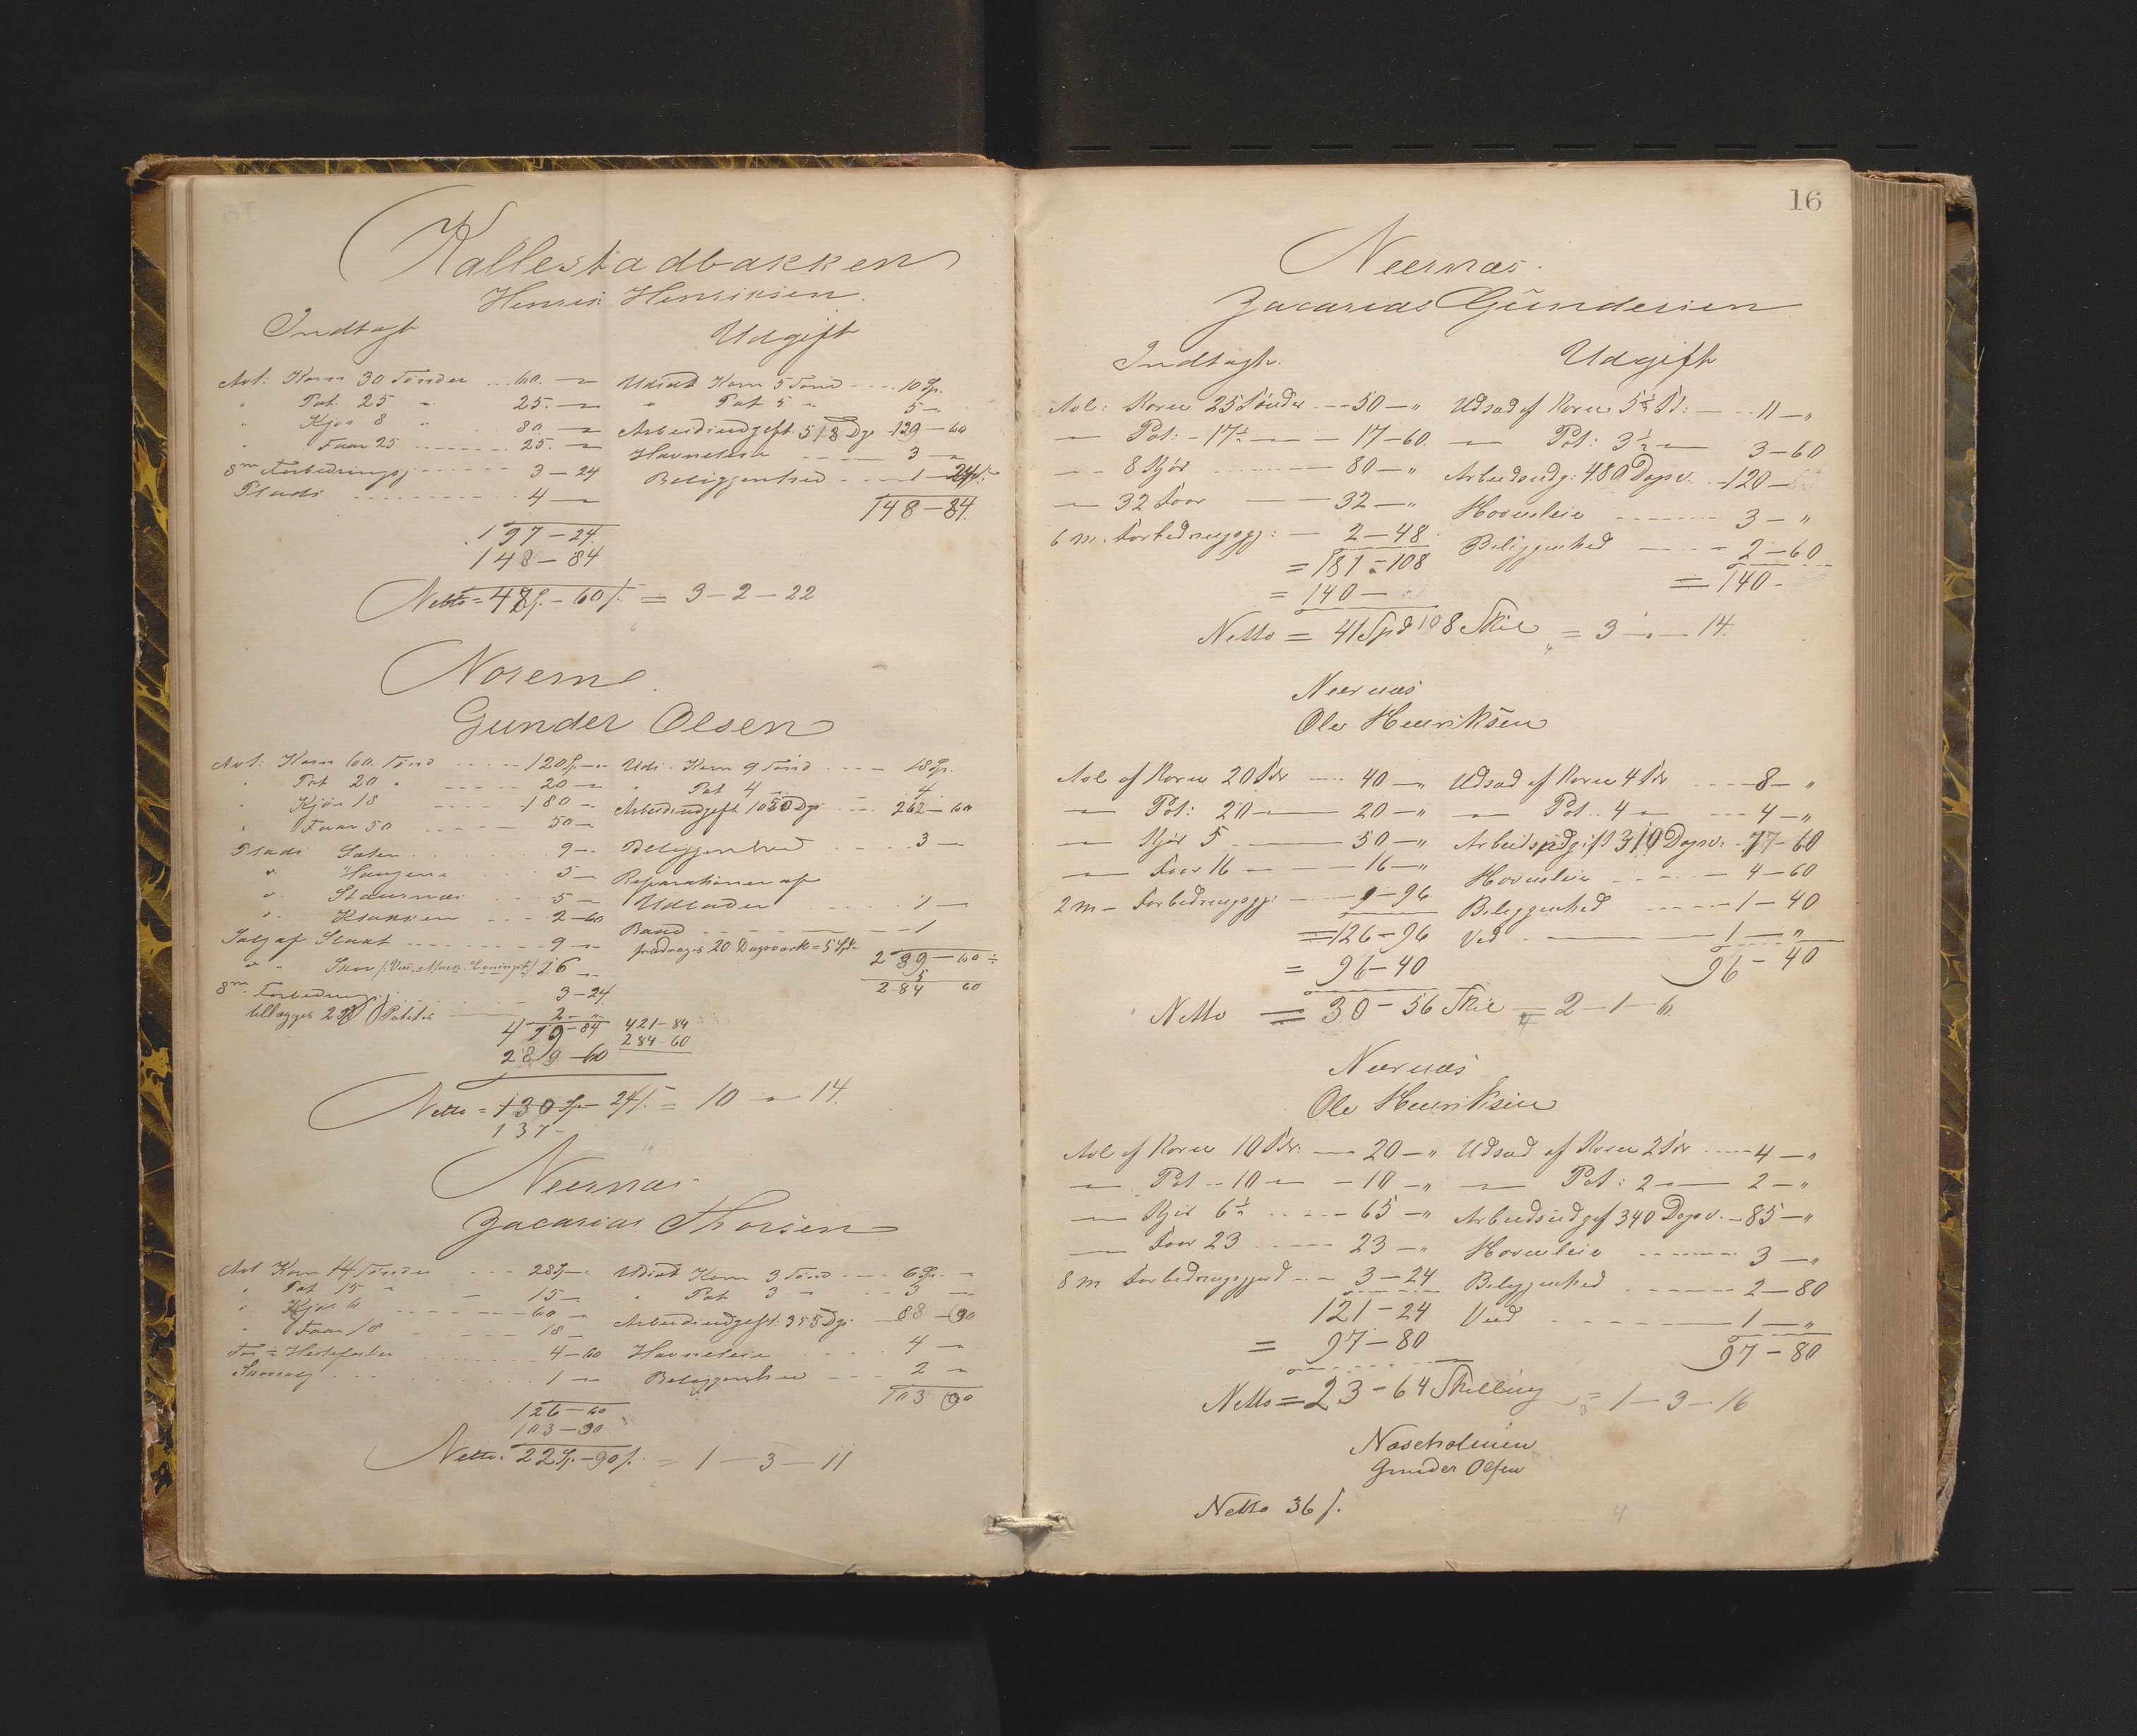 Kallestadbakken
Henrik Henriksen.
Indtægt Udgift
Avl: Korn 30 Tønder ... 60. — Udsæd Korn 5 Tønd ---- 10 Sp.
" Pot. 25 " 25. — " Pot 5 " 5 —
" Kjør 8 " 80. — Arbeidsudgift. 518 Dgv. 129 — 60
" Faar 25 ........ 25. — Havneleie ----- 3 —
8m Forbedringsgj ...... 3 — 24 Beliggenhed ---- 1 — 24 s.
Plads .......... 4 — 148 — 84.
197 — 24.
148 — 84
Netto = 48 Sp. — 60 s. = 3 — 2 — 22
Norem
Gunder Olsen
Avl: Korn 60 Tønd ----- 120 Sp. — Uds. Korn 9 Tønd ---- 18 Sp.
" Pot 20 " ----- 20 — " Pot 4 " 4.
" Kjør 18 ---- 180 — Arbeidsudgift 1050 Dgv. --- 262 — 60
" Faar 50 ----- 50 —
Plads Sæter ........ 9 — Beliggenhed ---- 3 —
" Haugene 5 — Reparationer af
" Staursnæs --- 5 — Udlader ..... 1 —
" Klakken --- 2 — 60 Baand ------- 1
Salg af Slaat ....... 9 — fradrages 20 Dagsværk = 5 Spd 289 — 60
" " Skov 16 — 5
8m Forbedringsgj. 3 — 24. 284 60
tillægges Poteter 2 — "
419 — 84 421 — 84
289 — 60 284 — 60
Netto = 130 Sp. 24 s. = 10 — " — 14.
137 —
Neernæs
Zacarias Thorsen
Avl Korn 14 Tønder --- 28 Sp — " Udsæd Korn 3 Tønd ---- 6 Sp. —
" Pot 15 " — 15 — " Pot 3 " -- 3 —
" Kjør 6 ------- 60 — Arbeidsudgift: 355 Dgv. 88 — 90
" Faar 18 ----- 18 —
For ½ Hestefoder ....... 4 — 60 Havneleie ..... 4 —
Skovsalg ........ 1 — Beliggenhed --- 2 —
126 — 60 103 90
103 — 90
Netto = 22 Sp. — 90 s. = 1 — 3 — 11
16
Neernæs.
Zacarias Gundersen
Indtægt. Udgift
Avl: Korn 25 Tønder --- 50 — " Udsæd af Korn 5½ Td: --- 11 — "
— Pot: - 17½ — — 17 — 60. — Pot: 3½ — 3 — 60
— 8 Kjør ------- 80 — " Arbeidsudg: 480 Dagsv. - 120 —
— 32 Faar —— 32 — " Havneleie ------- 3 — "
6 m. Forbedringsgj: — 2 — 48. Beliggenhed ---- 2 — 60
= 181 - 108 = 140 -
= 140 —
Netto = 41 Spd 108 Skil = 3 — " — 14.
Neernæs
Ole Henriksen
Avl af Korn 20 Tdr --- 40 — " Udsæd af Korn 4 Tdr ---- 8 — "
— Pot: 20 —— 20 — " — Pot.. 4 — --- 4 — "
— Kjør 5 ——— 50 — " Arbeidsudgift 310 Dagsv. - 77 — 60
— Faar 16 — — 16 — " Havneleie ----- 4 — 60
2 m — Forbedringsgj: --- " — 96 Beliggenhed ----- 1 — 40
= 126 — 96 Ved ——— 1 — "
= 96 — 40 96 — 40
Netto = 30 — 56 Skil = 2 — 1 — 6.
Neernæs
Ole Henriksen
Avl af Korn 10 Tdr. — 20 — " Udsæd af Korn 2 Tdr ---- 4 — "
— Pot - 10 — — 10 — " — Pot: 2 —— 2 — "
— Kjør 6½ ..... 65 — " Arbeidsudgif 340 Dagsv. - 85 — "
— Faar 23 ---- 23 — " Havneleie ------ 3 — "
8 m Forbedringsgjerd --- 3 — 24 Beliggenhed ------ 2 — 80
121 — 24 Ved --------- 1 — "
= 97 — 80 97 — 80
Netto = 23 — 64 Skilling = 1 — 3 — 16
Næseholmen
Gunder Olsen
Netto 36 s.